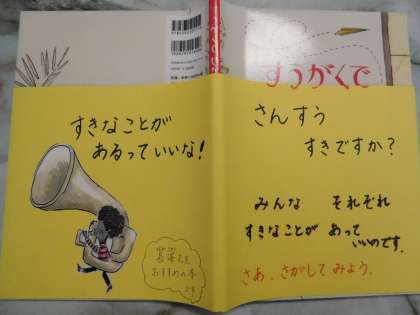 すうがくで
すきなことが
あるっていいな!
おすすめの本
さんすう
すきですか?
みんな それぞれ
すきなことが あって
いいのです。
さあ、さがして みよう。